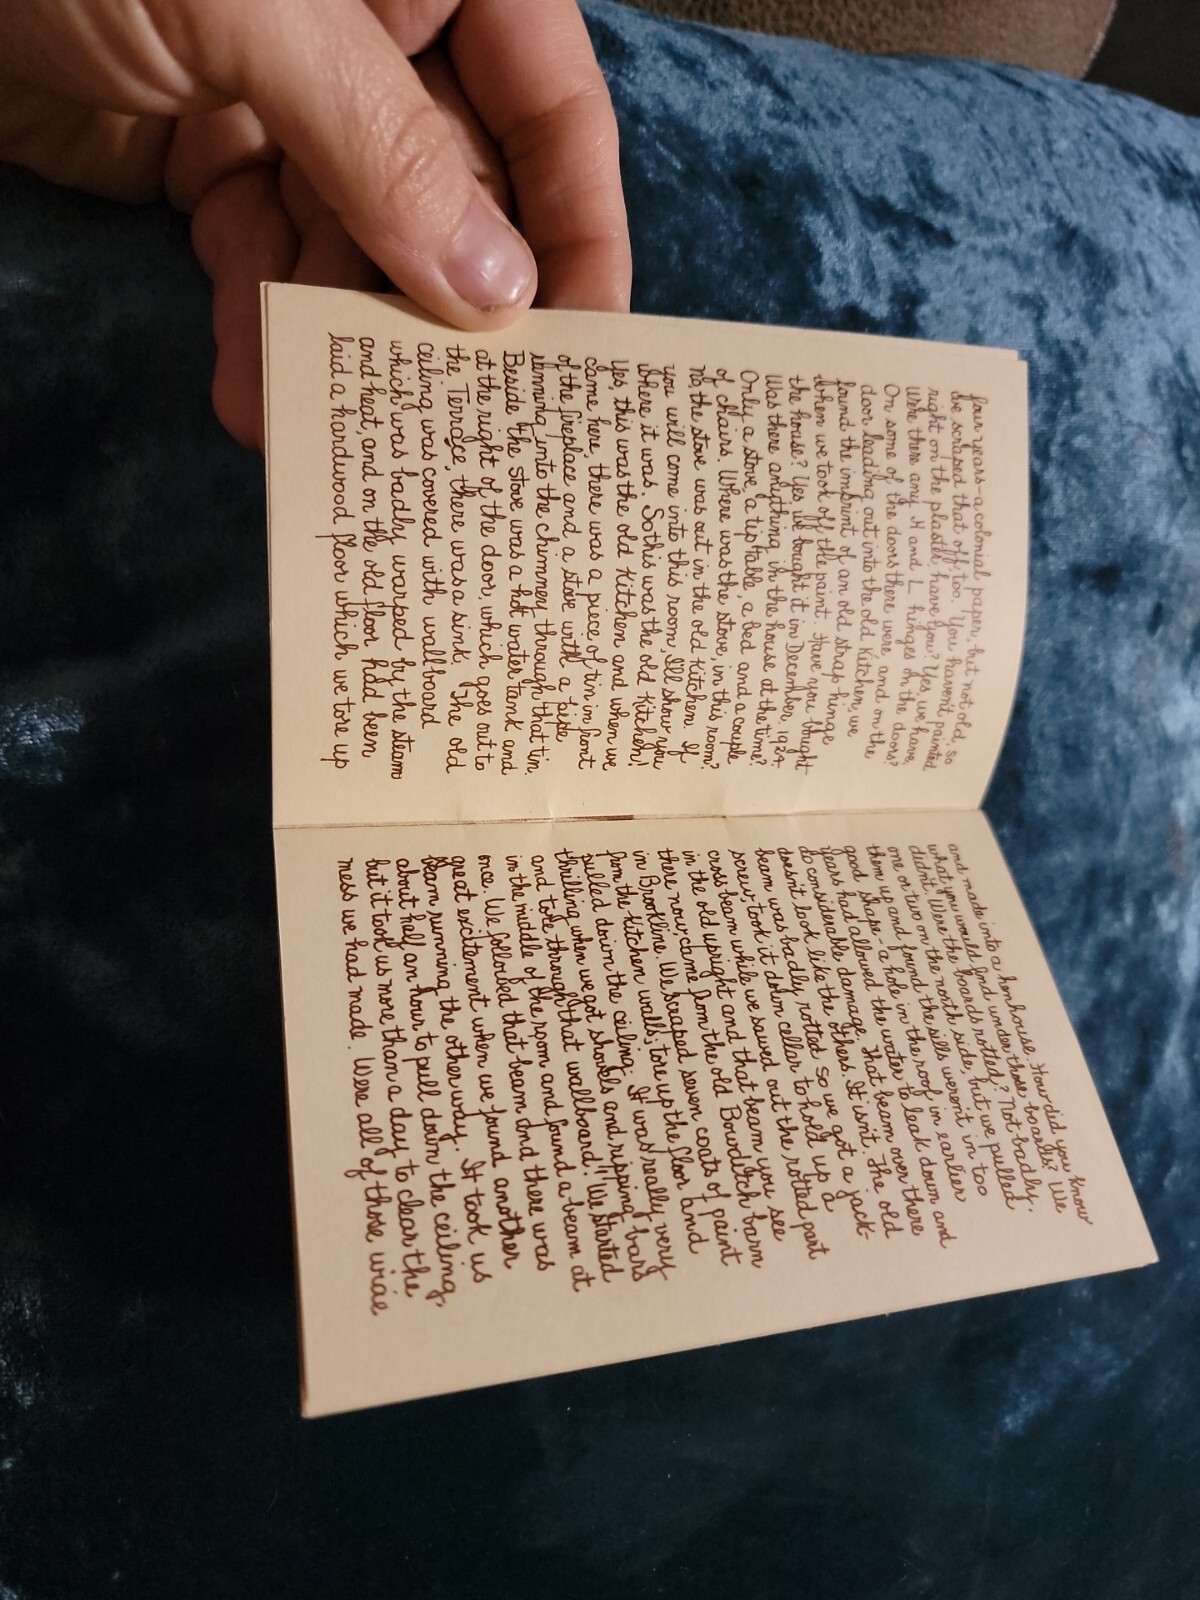 four years - a colonial paper, but not old, so
we scraped that off, too. You haven't painted
right on the plaster, have you? Yes, we have.
Were there any H and L hinges on the doors?
On some of the doors there were, and on the
door leading out into the old Kitchen, we
found the imprint of an old strap hinge
when we took off the paint. Have you bought
the house? Yes we bought it in December, 1924.
Was there anything in the house at the time?
Only a stove, a tip table, a bed and a couple
of chairs. Where was the stove, in this room?
No, the stove was out in the old Kitchen. If
you will come into this room, I'll show you
where it was. So this was the old Kitchen!
Yes, this was the old Kitchen and when we
came here, there was a piece of tin in front
of the fireplace and a stove with a pipe
running into the chimney through that tin.
Beside the stove was a hot water tank and
at the right of the door, which goes out to
the Terrace, there was a sink. The old
ceiling was covered with wallboard
which was badly warped by the steam
and heat, and on the old floor had been
laid a hardwood floor which we tore up
and made into a henhouse. How did you know
what you would find under those boards? We
didn't. Were the boards rotted? Not badly,
one or two on the north side, but we pulled
them up and found the sills weren't in too
good shape - a hole in the roof in earlier
years had allowed the water to leak down and
do considerable damage. That beam over there
doesn't look like the others. It isn't. The old
beam was badly rotted so we got a jack-
screw, took it down cellar to hold up a
cross beam while we sawed out the rotted part
in the old upright and that beam you see
there now came from the old Bowditch barn
in Brookline. We scraped seven coats of paint
from the kitchen walls, tore up the floor and
pulled down the ceiling. It was really very
thrilling when we got shovels and ripping bars
and tore through that wallboard! We started
in the middle of the room and found a beam at
once. We followed that beam and there was
great excitement when we found another
beam running the other way. It took us
about half an hour to pull down the ceiling,
but it took us more than a day to clear the
mess we had made. Were all of those wide